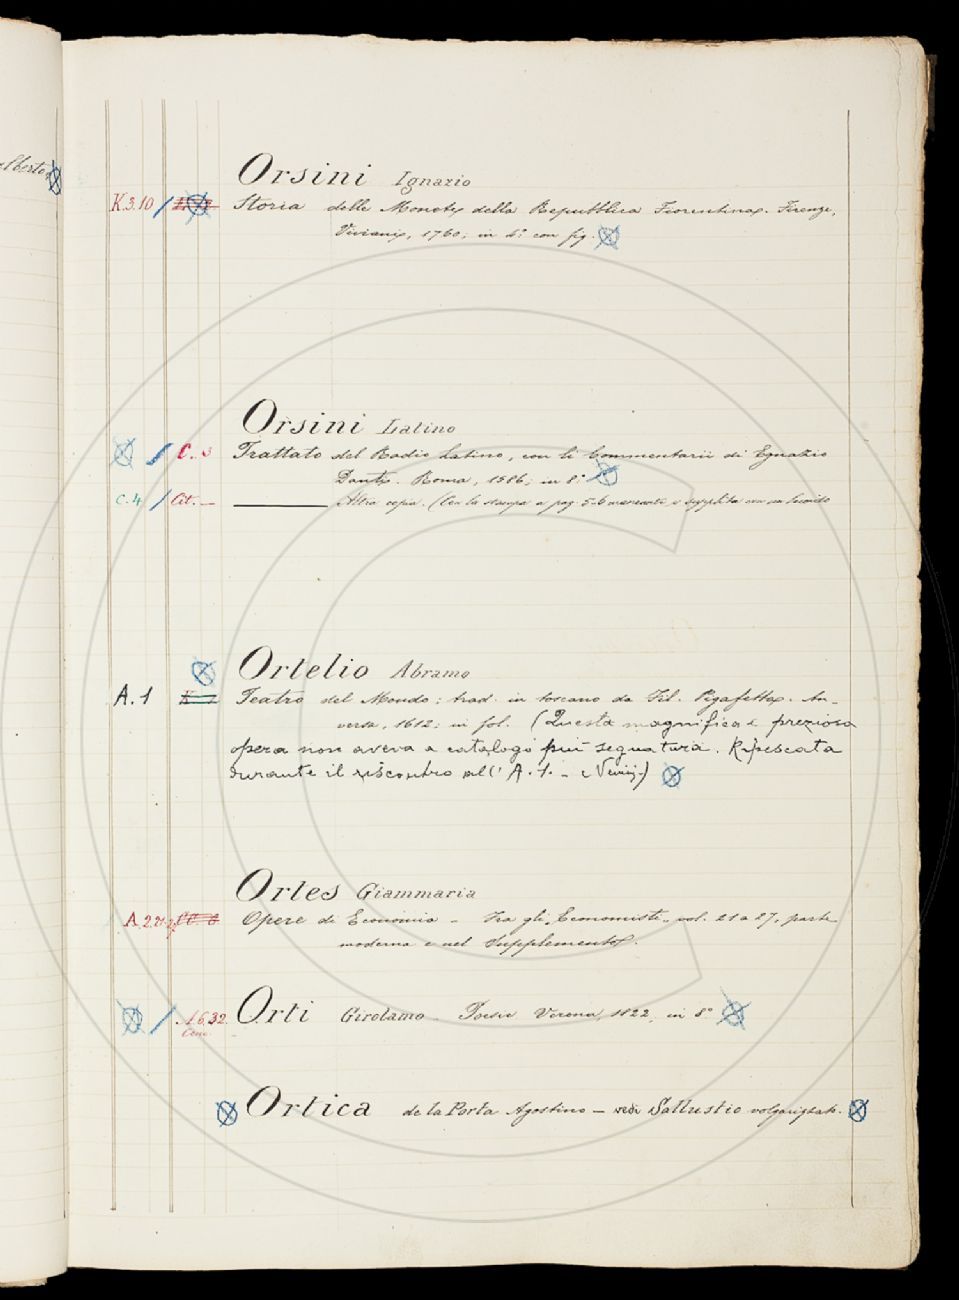 Alberto
Orsini Ignazio
K.3.10 / Storia delle Monete della Repubblica Fiorentina. Firenze,
Viviani, 1760; in 4° con fig.
Orsini Latino
/ C. 3 Trattato del Radio Latino, con li Commentarii di Egnazio
Dante. Roma, 1586; in 8°
C.4 / Cit. — ——— Altra copia. (Con la stampa a pag. 5-6 mancante e supplita con un lucido
Ortelio Abramo
A.1 Teatro del Mondo; trad. in toscano da Fil. Pigafetta. An-
versa, 1612; in fol. (Questa magnifica e preziosa
opera non aveva a catalogo più segnatura. Ripescata
durante il riscontro all'A.1. -
Ortes Giammaria
Opere di Economia - Fra gli Economisti, vol. 21 a 27, parte
moderna e nel Supplemento.
/ A.6.32 Orti Girolamo - Poesie Verona, 1822, in 8°
Ortica de la Porta Agostino — vedi Sallustio volgarizzat.